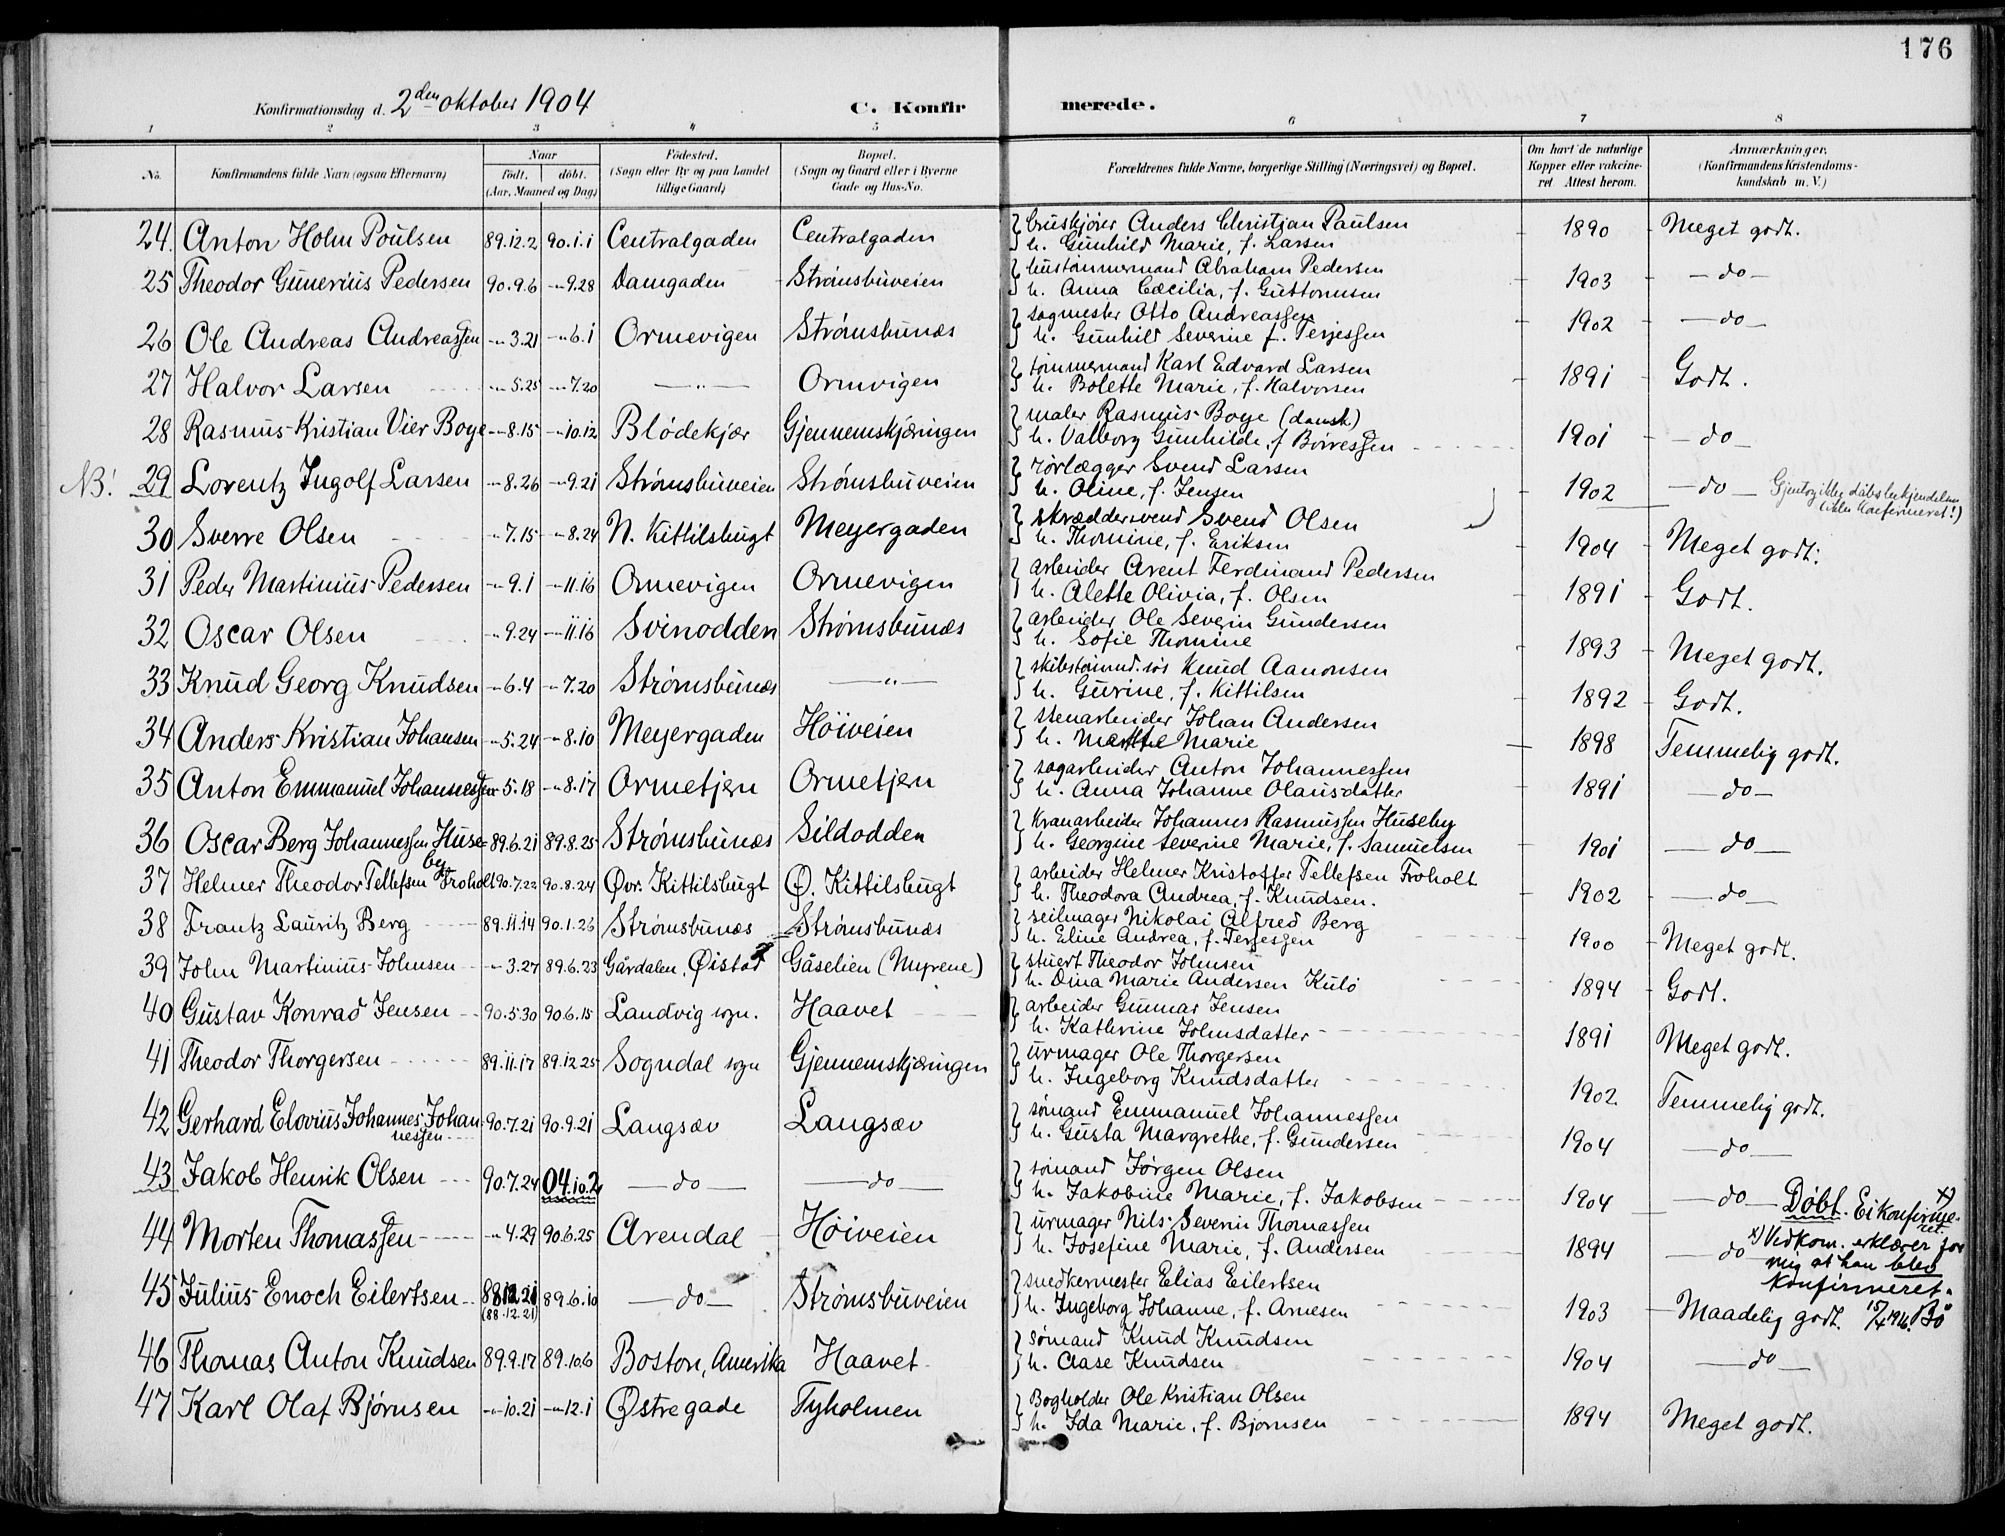 176
Konfirmationsdag d. 2den oktober 1904 C. Konfirmerede.
1 2 3 4 5 6 7 8
No. Konfirmandens fulde Navn (ogsaa Efternavn) Naar født. døbt. (Aar, Maaned og Dag) Fødested. (Sogn eller By og paa Landet tillige Gaard) Bopæl. (Sogn og Gaard eller i Byerne Gade og Hus-No.) Forældrenes fulde Navne, borgerlige Stilling (Næringsvei) og Bopæl. Om havt de naturlige Kopper eller vakcineret. Attest herom. Anmærkninger. (Konfirmandens Kristendomskundskab m. V.)
24. Anton Holm Poulsen 89.12.2 90.1.1 Centralgaden Centralgaden Anders Christian Paulsen 1890 Meget godt.
h. Gunhild Marie, f. Larsen
25 Theodor Gunerius Pedersen 90.9.6 -"-9.28 Damgaden Strømsbuveien hustømmermand Abraham Pedersen 1903 - do -
h. Anna Cæcilia, f. Guttormsen
26 Ole Andreas Andreassen -"-3.21 -"-6.1 Ormevigen Strømsbunæs sagmester Otto Andreassen 1902 - do -
h. Gunhild Severine f. Terjessen
27 Halvor Larsen -"-5.25 -"-7.20 -"- Ormvigen tømmermand Karl Edvard Larsen 1891 Godt.
h. Bolette Marie, f. Halvorsen
28 Rasmus Kristian Vier Boye -"-8.15 -"-10.12 Blødekjær Gjennemskjæringen maler Rasmus Boye (dansk) 1901 - do -
h. Valborg Gunhilde, f Børresen
NB! 29 Lorentz Ingolf Larsen -"-8.26 -"-9.21 Strømsbuveien Strømsbuveien rørlægger Svend Larsen 1902 - do - Gjentog ikke dåbsbekjendelsen
h. Oline, f. Jensen (ikke konfirmeret!)
30 Sverre Olsen -"-7.15 -"-8.24 N. Kittilsbugt Meyergaden skræddersvend Svend Olsen 1904 Meget godt.
h. Thomine, f. Eriksen
31 Peder Martinius Pedersen -"-9.1 -"-11.16 Ormevigen Ormevigen arbeider Arent Ferdinand Pedersen 1891 Godt.
h. Alette Olivia, f. Olsen
32 Oscar Olsen -"-9.24 -"-11.16 Svinodden Strømsbunæs arbeider Ole Severin Gundersen 1893 Meget godt.
h. Sofie Thomine
33 Knud Georg Knudsen -"-6.4 -"-7.20 Strømsbunæs -"- Knud Aanonsen 1892 Godt.
h. Gurine, f. Kittilsen
34 Anders Kristian Johansen -"-5.24 -"-8.10 Meyergaden Höiveien stenarbeider Johan Andersen 1898 Temmelig godt.
h. Marthe Marie
35 Anton Emmanuel Johannessen -"-5.18 -"-8.17 Ormetjern Ormetjen sagarbeider Anton Johannessen 1891 - do -
h. Anna Johanne Olausdatter
36 Oscar Berg Johannessen Huse= 89.6.21 89.8.25 Strømsbunæs Sildodden Kranarbeider Johannes Rasmussen Huseby 1901 - do -
by h. Georgine Severine Marie, f. Samuelsen
37 Helmer Theodor Tellefsen Froholt 90.7.22 90.8.24 Øvr. Kittilsbugt Ø. Kittilsbugt arbeider Helmer Kristoffer Tellefsen Froholt 1902 - do -
h. Theodora Andrea, f. Knudsen.
38 Frantz Lauritz Berg 89.11.14 90.1.26 Strømsbunæs Strømsbunæs seilmager Nikolai Alfred Berg 1900 Meget godt.
h. Eline Andrea, f. Terjessen
39 John Martinius Johnsen -"-3.27 89.6.23 Gårdalen, Øistad Gåselien (Myrene) stuert Theodor Johnsen 1894 Godt.
h. Dina Marie Andersen Kulö
40 Gustav Konrad Jensen 90.5.30 90.6.15 Landvig sogn. Haavet arbeider Gunnar Jensen 1891 Meget godt.
h. Kathrine Johnsdatter
41 Theodor Thorgersen 89.11.17 89.12.25 Sogndal sogn Gjennemskjæringen urmager Ole Thorgersen 1902 Temmelig godt.
h. Ingeborg Knudsdatter
42 Gerhard Elovius Johannes Johan= 90.7.21 90.9.21 Langsæv Langsæv sømand Emmanuel Johannessen 1904 - do -
nessen h. Gusta Margrethe, f. Gundersen
43 Jakob Henrik Olsen 90.7.24 04.10.2 - do - - do - sømand Jørgen Olsen 1904 - do - Döbt. Ei konfirme= x)
h. Jakobine Marie, f. Jakobsen ret.
44 Morten Thomassen -"-4.29 90.6.25 Arendal Höiveien urmager Nils Severin Thomassen 1894 - do - x) Vedkom. erklærer for
h. Josefine Marie, f. Andersen mig at han blev
45 Julius Enoch Eilertsen 88.12.21 89.6.10 - do - Strømsbuveien snedkermester Elias Eilertsen 1903 Maadelig godt. konfirmeret.
(88.12.21) h. Ingeborg Johanne, f. Arnesen 15/4 1916. Bö
46 Thomas Anton Knudsen 89.9.17 89.10.6 Boston, Amerika Haavet sømand Knud Knudsen 1904 - do -
h. Aase Knudsen
47 Karl Olaf Bjørnsen -"-10.21 -"-12.1 Østregade Tyholmen Bogholder Ole Kristian Olsen 1894 Meget godt.
h. Ida Marie, f. Bjørnsen